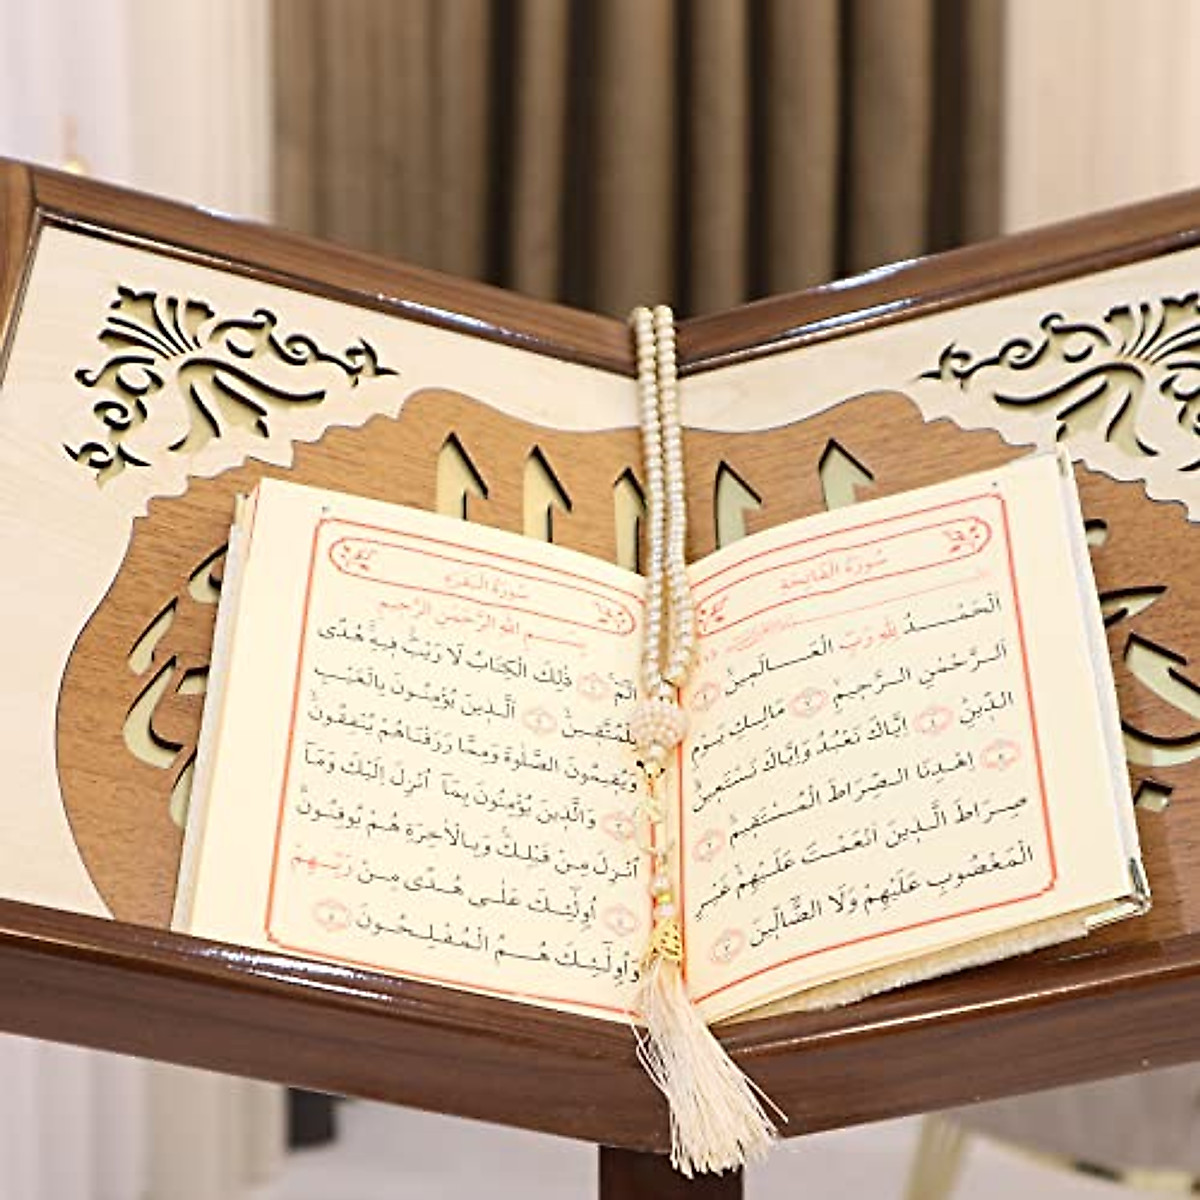 سُورَةُ الْفَاتِحَةِ
الْحَمْدُ لِلّٰهِ رَبِّ الْعَالَمِينَ ﴿٢﴾
اَلرَّحْمٰنِ الرَّحِيمِ ﴿٣﴾ مَالِكِ يَوْمِ
الدِّينِ ﴿٤﴾ اِيَّاكَ نَعْبُدُ وَاِيَّاكَ نَسْتَعِينُ
﴿٥﴾ اِهْدِنَا الصِّرَاطَ الْمُسْتَقِيمَ ﴿٦﴾
صِرَاطَ الَّذِينَ اَنْعَمْتَ عَلَيْهِمْ غَيْرِ
الْمَغْضُوبِ عَلَيْهِمْ وَلَا الضَّالِّينَ ﴿٧﴾
سُورَةُ الْبَقَرَةِ
بِسْمِ اللهِ الرَّحْمٰنِ الرَّحِيمِ
الٓمٓ ﴿١﴾ ذٰلِكَ الْكِتَابُ لَا رَيْبَ فِيهِ هُدًى
لِلْمُتَّقِينَ ﴿٢﴾ اَلَّذِينَ يُؤْمِنُونَ بِالْغَيْبِ
وَيُقِيمُونَ الصَّلٰوةَ وَمِمَّا رَزَقْنَاهُمْ يُنْفِقُونَ
﴿٣﴾ وَالَّذِينَ يُؤْمِنُونَ بِمَٓا اُنْزِلَ اِلَيْكَ وَمَٓا
اُنْزِلَ مِنْ قَبْلِكَ وَبِالْاٰخِرَةِ هُمْ يُوقِنُونَ
﴿٤﴾ اُو۬لٰٓئِكَ عَلٰى هُدًى مِنْ رَبِّهِمْ
وَاُو۬لٰٓئِكَ هُمُ الْمُفْلِحُونَ ﴿٥﴾